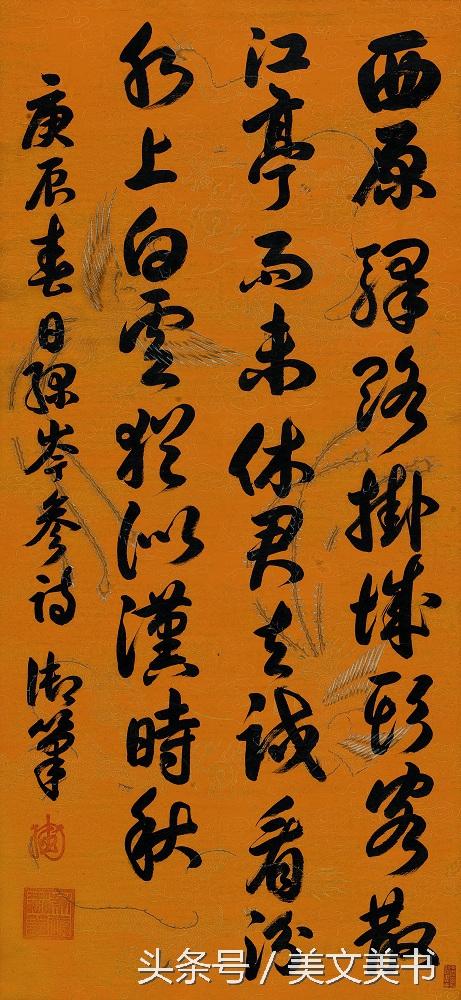 西原驛路掛城頭客散
江亭雨未休君去試看汾
水上白雲猶似漢時秋
庚辰春日録岑參詩 御筆
头条号/美文美书